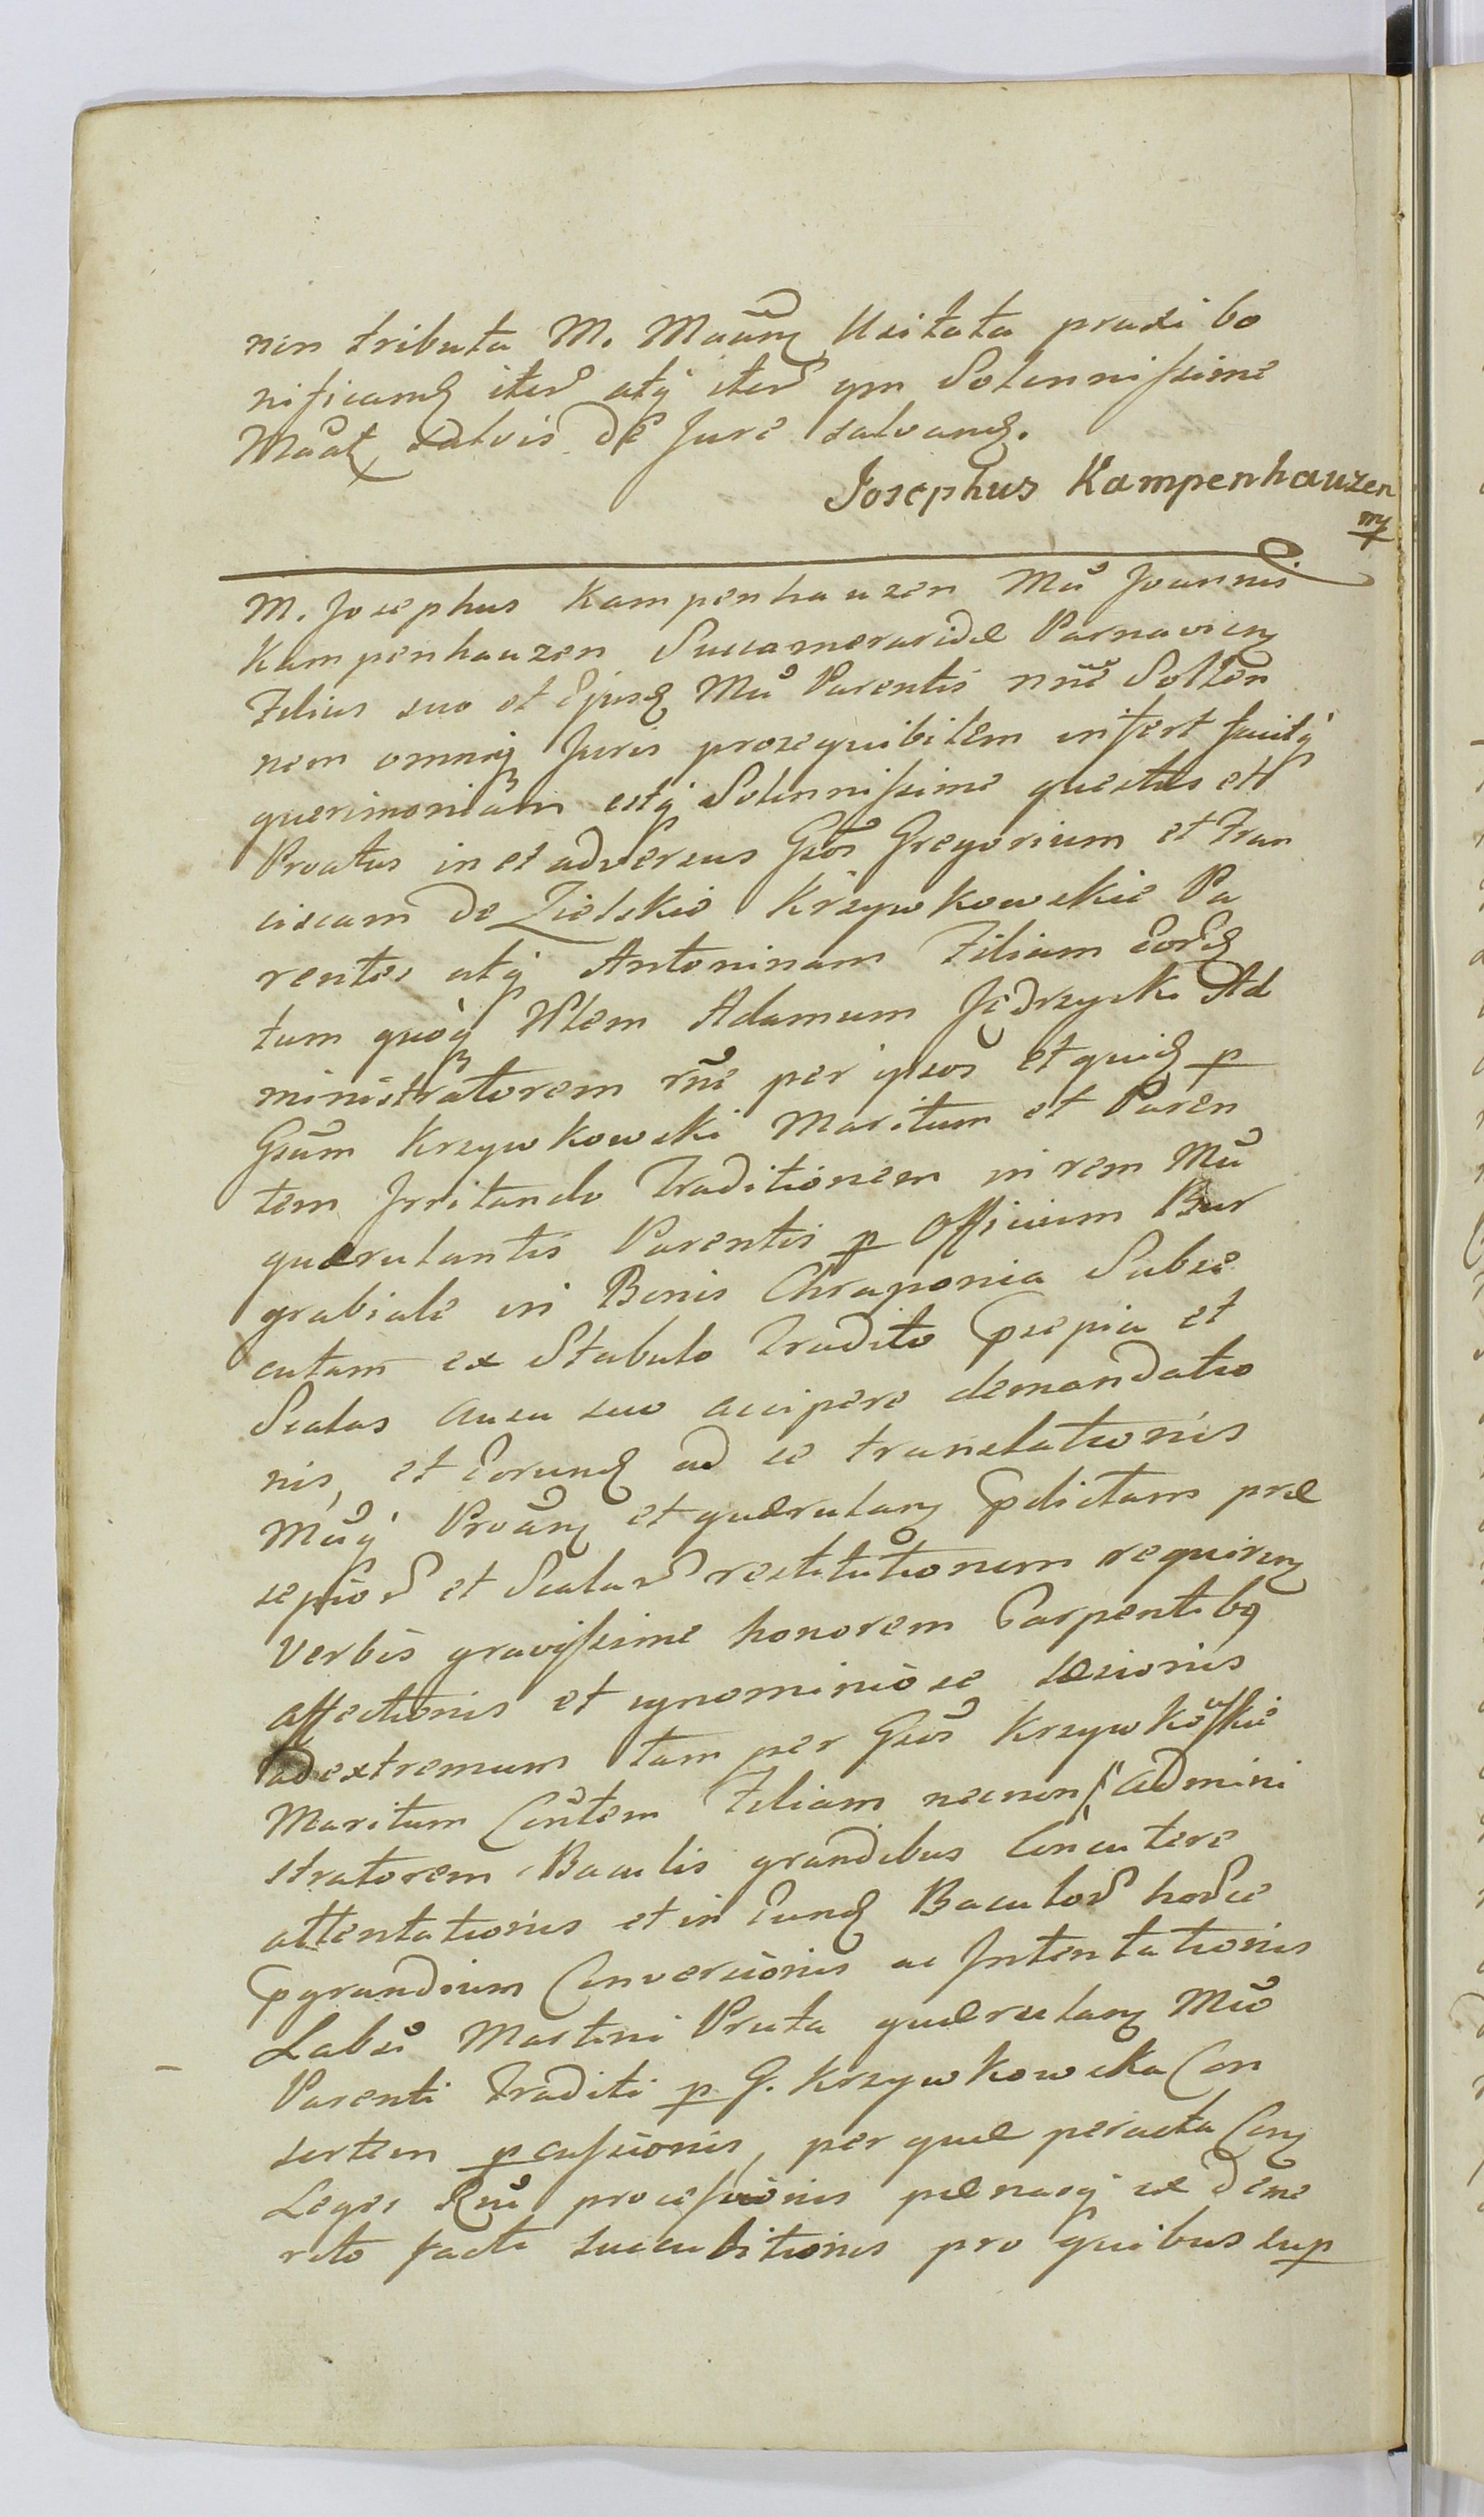 nin tributa M. Maūnꝫ Usitata praxi bo
nificandꝫ iter̃ atq iter̃ qm Solennissime
Māat salvis de Jure salvandꝫ.
Josephus Kampenhauzen
mp
M. Josephus Kampenhauzen Mci Joannis
Kampenhauzen Succameraridæ Parnaviensꝫ
Filius suo et Ejusdꝫ Mci Parentis nñe Sollen
nem omniqꝫ Juris prosequibilem infert facitq
querimoniam estq Solennissime questus et
Proatus in et adversus Gsos Gregorium et Fran
ciscam de Zielskie Krzywkowskie Pa
rentes atq Antoninam Filiam Eordꝫ
tum quoqꝫ Nlem Adamum Jędrzycki Ad
ministratorem rñe per ipsos et quidꝫ p
Gsum Krzywkowski Maritum et Paren
tem Irritando Traditionem in rem Mci
quærulantis Parentis p Officium Bur
grabiale in Bonis Chraponia Subse
cutam ex Stabulo Tradito Præsepia et
Scalas Ausu suo accipere demandatio
nis, et Eorundꝫ ad se translationis
Mciq Proanꝫ et quærulanꝫ prædictam præ
sepior̃ et Scalar̃ restitutionem requirenꝫ
Verbis gravissime honorem Carpentibꝫ
affectionis et ignominiose læsionis
ad extremum tam per Gsos Krzywkowskie
Maritum Contem Filiam necnon admini
stratorem Baculis grandibus Concutere
attentationis et in Eundꝫ Baculor̃ hocce
prægrandium Conversionis ac Intentationis
Labsi Martini Pruta quærulanꝫ Mco
Parenti Traditi p G. Krzywkowska Con
sortem pcussionis, per quæ peracta Conꝫ
Leges Rni processionis pænasq ex deme
rito facti succubitionis pro quibus sup